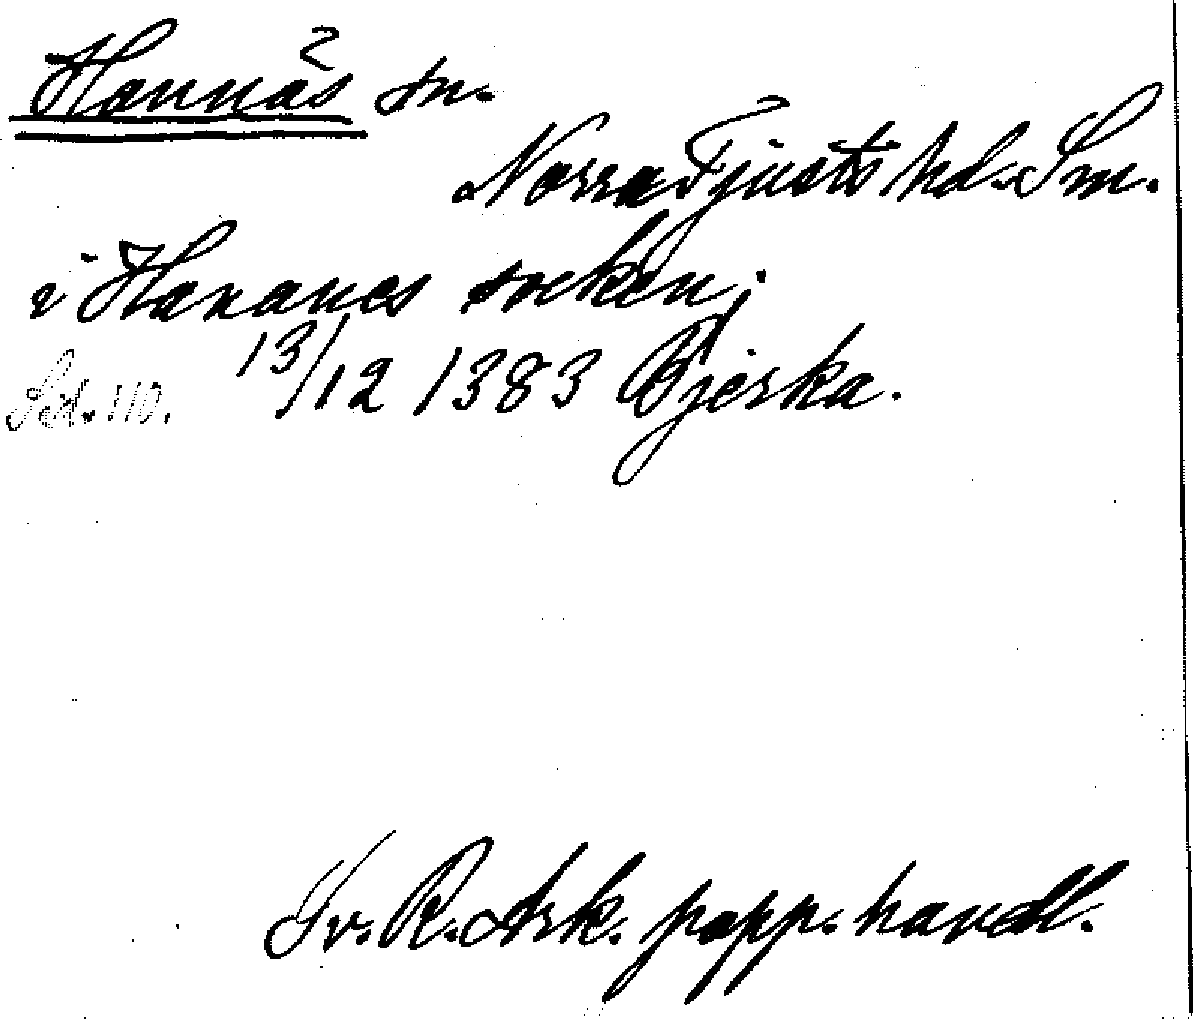 Hannäs sn.
Norra Tjusts hd. Sm.
i Hananes soken;
13/12 1383 Bjerka.
Sv. R. Ark. papp. handl.